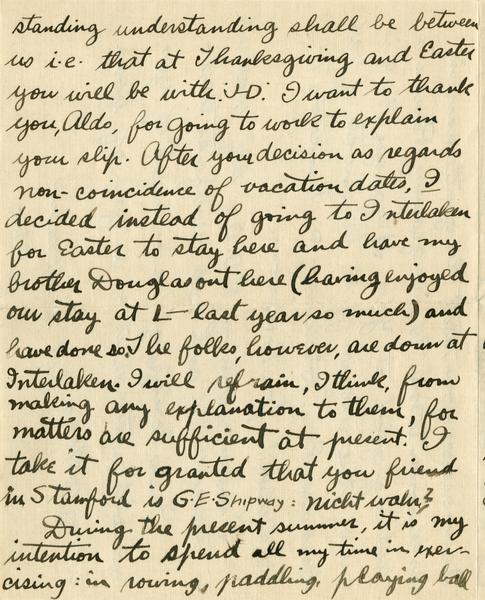 standing understanding shall be between
us i.e. that at Thanksgiving and Easter
you will be with J.D. I want to thank
you, Aldo, for going to work to explain
your slip. After your decision as regards
non-coincidence of vacation dates, I
decided instead of going to Interlaken
for Easter to stay here and have my
brother Douglas out here (having enjoyed
our stay at L— last year so much) and
have done so. The folks, however, are down at
Interlaken. I will refrain, I think, from
making any explanation to them, for
matters are sufficient at present. I
take it for granted that you friend
in Stamford is G.E. Shipway: nicht wahr?
During the present summer, it is my
intention to spend all my time in exer-
cising: in rowing, paddling, playing ball